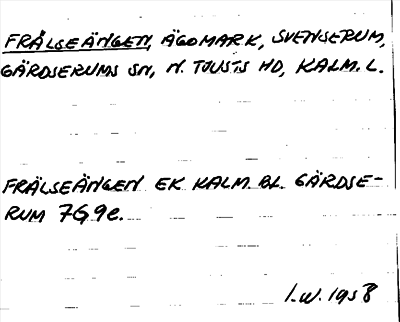 FRÄLSEÄNGEN, ÄGOMARK, SVENSERUM,
GÄRDSERUMS SN, N. TJUSTS HD, KALM. L.
FRÄLSEÄNGEN EK KALM. BL. GÄRDSE-
RUM 7G9e.
I.W. 1958